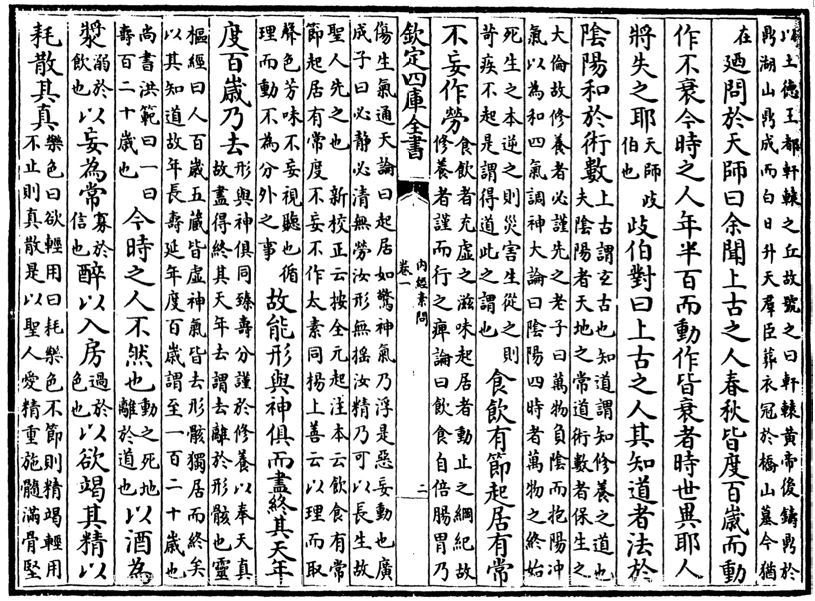 以土德王都軒轅之丘故號之曰軒轅黄帝後鑄鼎於
鼎湖山鼎成而白日升天羣臣葬衣冠於橋山墓今猶
在迺問於天師曰余聞上古之人春秋皆度百歲而動
作不衰今時之人年半百而動作皆衰者時世異耶人
將失之耶天師岐伯也岐伯對曰上古之人其知道者法於
陰陽和於術數上古謂玄古也知道謂知修養之道也夫陰陽者天地之常道術數者保生之
大倫故修養者必謹先之老子曰萬物負陰而抱陽冲
氣以為和四氣調神大論曰陰陽四時者萬物之終始
死生之本逆之則災害生從之則苛疾不起是謂得道此之謂也食飲有節起居有常
不妄作勞食飲者充虚之滋味起居者動止之綱紀故修養者謹而行之痺論曰飲食自倍腸胃乃
欽定四庫全書
内經素問
卷一
二
傷生氣通天論曰起居如驚神氣乃浮是惡妄動也廣
成子曰必靜必清無勞汝形無揺汝精乃可以長生故
聖人先之也 新校正云按全元起注本云飲食有常
節起居有常度不妄不作太素同楊上善云以理而取
聲色芳味不妄視聽也循理而動不為分外之事故能形與神俱而盡終其天年
度百歲乃去形與神俱同臻壽分謹於修養以奉天真故盡得終其天年去謂去離於形骸也靈
樞經曰人百歲五臓皆虚神氣皆去形骸獨居而終矣
以其知道故年長壽延年度百歲謂至一百二十歲也
尚書洪範曰一曰壽百二十歲也今時之人不然也動之死地離於道也以酒為
漿溺於飲也以妄為常寡於信也醉以入房過於色也以欲竭其精以
耗散其真樂色曰欲輕用曰耗樂色不節則精竭輕用不止則真散是以聖人愛精重施髓滿骨堅